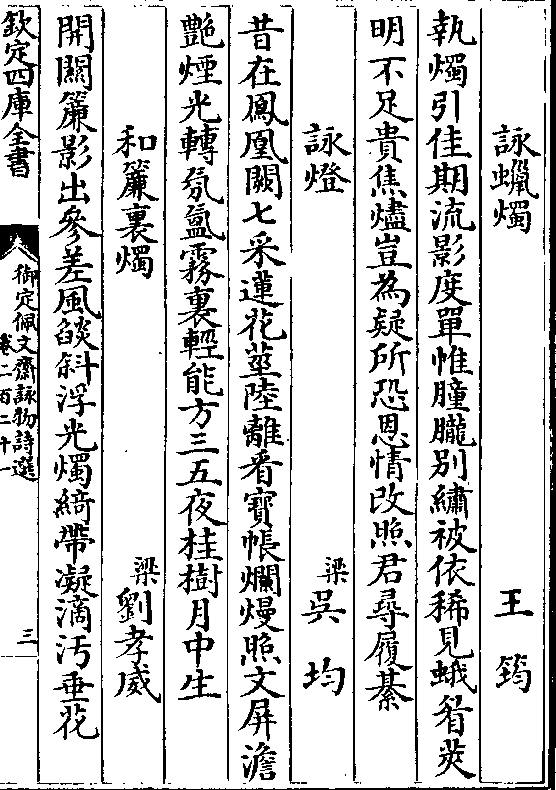 詠蠟燭 王筠
執燭引佳期流影度單帷朣朧別繡被依稀見蛾眉熒
明不足貴焦燼豈為疑所恐恩情改照君尋履綦
詠燈 梁吳均
昔在鳳凰闕七采蓮花莖陸離看寶帳爛熳照文屏澹
艷煙光轉氛氳霧裏輕能方三五夜桂樹月中生
和簾裏燭 梁劉孝威
開關簾影出參差風燄斜浮光燭綺帶凝滴汚垂花
欽定四庫全書
御定佩文齋詠物詩選
卷二百二十一
三